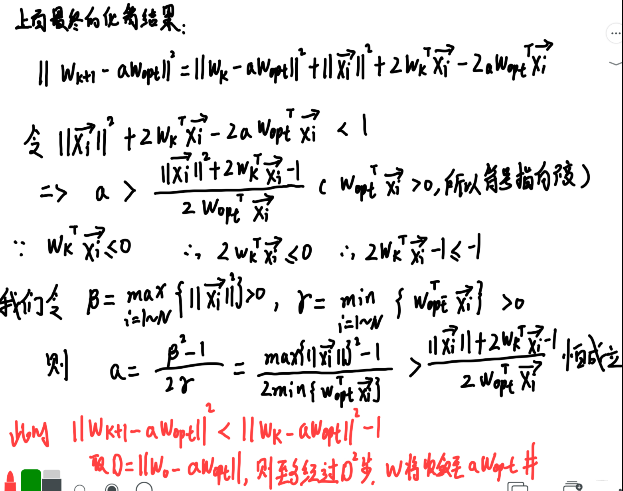 上面最终的化简结果:
|| W_{k+1} - aW_{opt} ||² = || W_k - aW_{opt} ||² + ||\vec{X_i}||² + 2W_k^T \vec{X_i} - 2aW_{opt}^T \vec{X_i}
令 ||\vec{X_i}||² + 2W_k^T \vec{X_i} - 2aW_{opt}^T \vec{X_i} < 1
=> a > \frac{||\vec{X_i}||² + 2W_k^T \vec{X_i} - 1}{2W_{opt}^T \vec{X_i}} ( W_{opt}^T \vec{X_i} > 0, 所以符号指向 )
∵ W_k^T \vec{X_i} ≤ 0 ∴ 2W_k^T \vec{X_i} ≤ 0 ∴ 2W_k^T \vec{X_i} - 1 ≤ -1
我们令 β = \max_{i=1~N} {||\vec{X_i}||²} > 0, γ = \min_{i=1~N} { W_{opt}^T \vec{X_i} } > 0
则 a = \frac{β² - 1}{2γ} = \frac{max{||\vec{X_i}||}² - 1}{2min{W_{opt}^T \vec{X_i}}} > \frac{||\vec{X_i}|| + 2W_k^T \vec{X_i} - 1}{2W_{opt}^T \vec{X_i}} 恒成立
此时 || W_{k+1} - aW_{opt} ||² < || W_k - aW_{opt} ||² - 1
取 D = || W_0 - aW_{opt} ||, 则至多经过 D² 步, W 将收敛至 aW_{opt} #